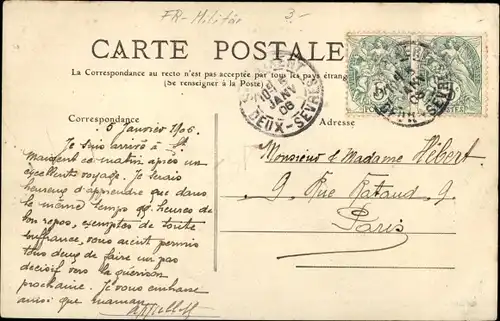 FR-Militär
3.-
CARTE POSTALE
La Correspondance au recto n'est pas acceptée par tous les pays étrang
(Se renseigner à la Poste)
10E
JANV
06
DEUX-SÈVRES
Correspondance
Adresse
5 Janvier 1906.
Je suis arrivé à St
Maixent ce matin après un
excellent voyage. Je serais
heureux d'apprendre que dans
le même temps 48 heures de
bon repos, exemptes de toute
souffrance, vous aient permis
tous deux de faire un pas
décisif vers la guérison
prochaine. Je vous embrasse
ainsi que maman.
Monsieur & Madame Hébert.
9 Rue Rataud 9.
Paris